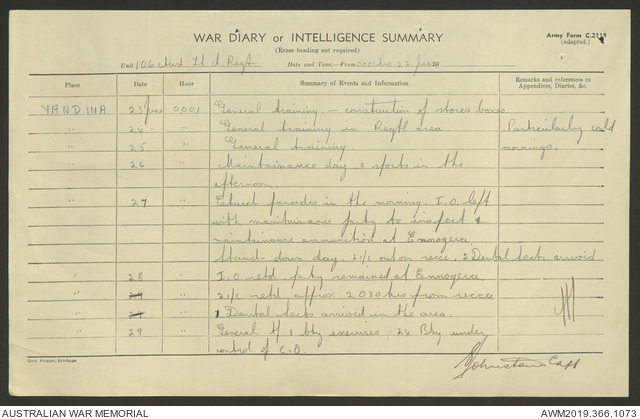 WAR DIARY or INTELLIGENCE SUMMARY
Army Form C.2118
(Erase heading not required)
(adapted.)
Unit 106 Lt A Regt Date and Time—From 0001hrs 23 June
Place Date Hour Summary of Events and Information Remarks and references to
Appendices, Diaries, &c.
YANDINA 23 June 0001 General training – construction of stores boxes
" 24 " General training in Regtl area. Particularly cold
" 25 " General training. mornings.
" 26 " Maintainance day & sports in the
afternoon.
" 27 " Church parades in the morning. I.O. left
with maintainance party to inspect &
maintainance ammunition at Ennogera
Stand down day. 2i/c out on recce. 2 Dental sects arrived
" 28 " I.O retd party remained at Ennogera.
" 29 " 2i/c retd approx 2030 hrs from recce
" 29 " 1 Dental sects arrived in the area.
" 29 " General tg 1 bty exercises, 26 Bty under
control of C.O.
Govt. Printer, Brisbane
Johnston Capt
AUSTRALIAN WAR MEMORIAL
AWM2019.366.1073